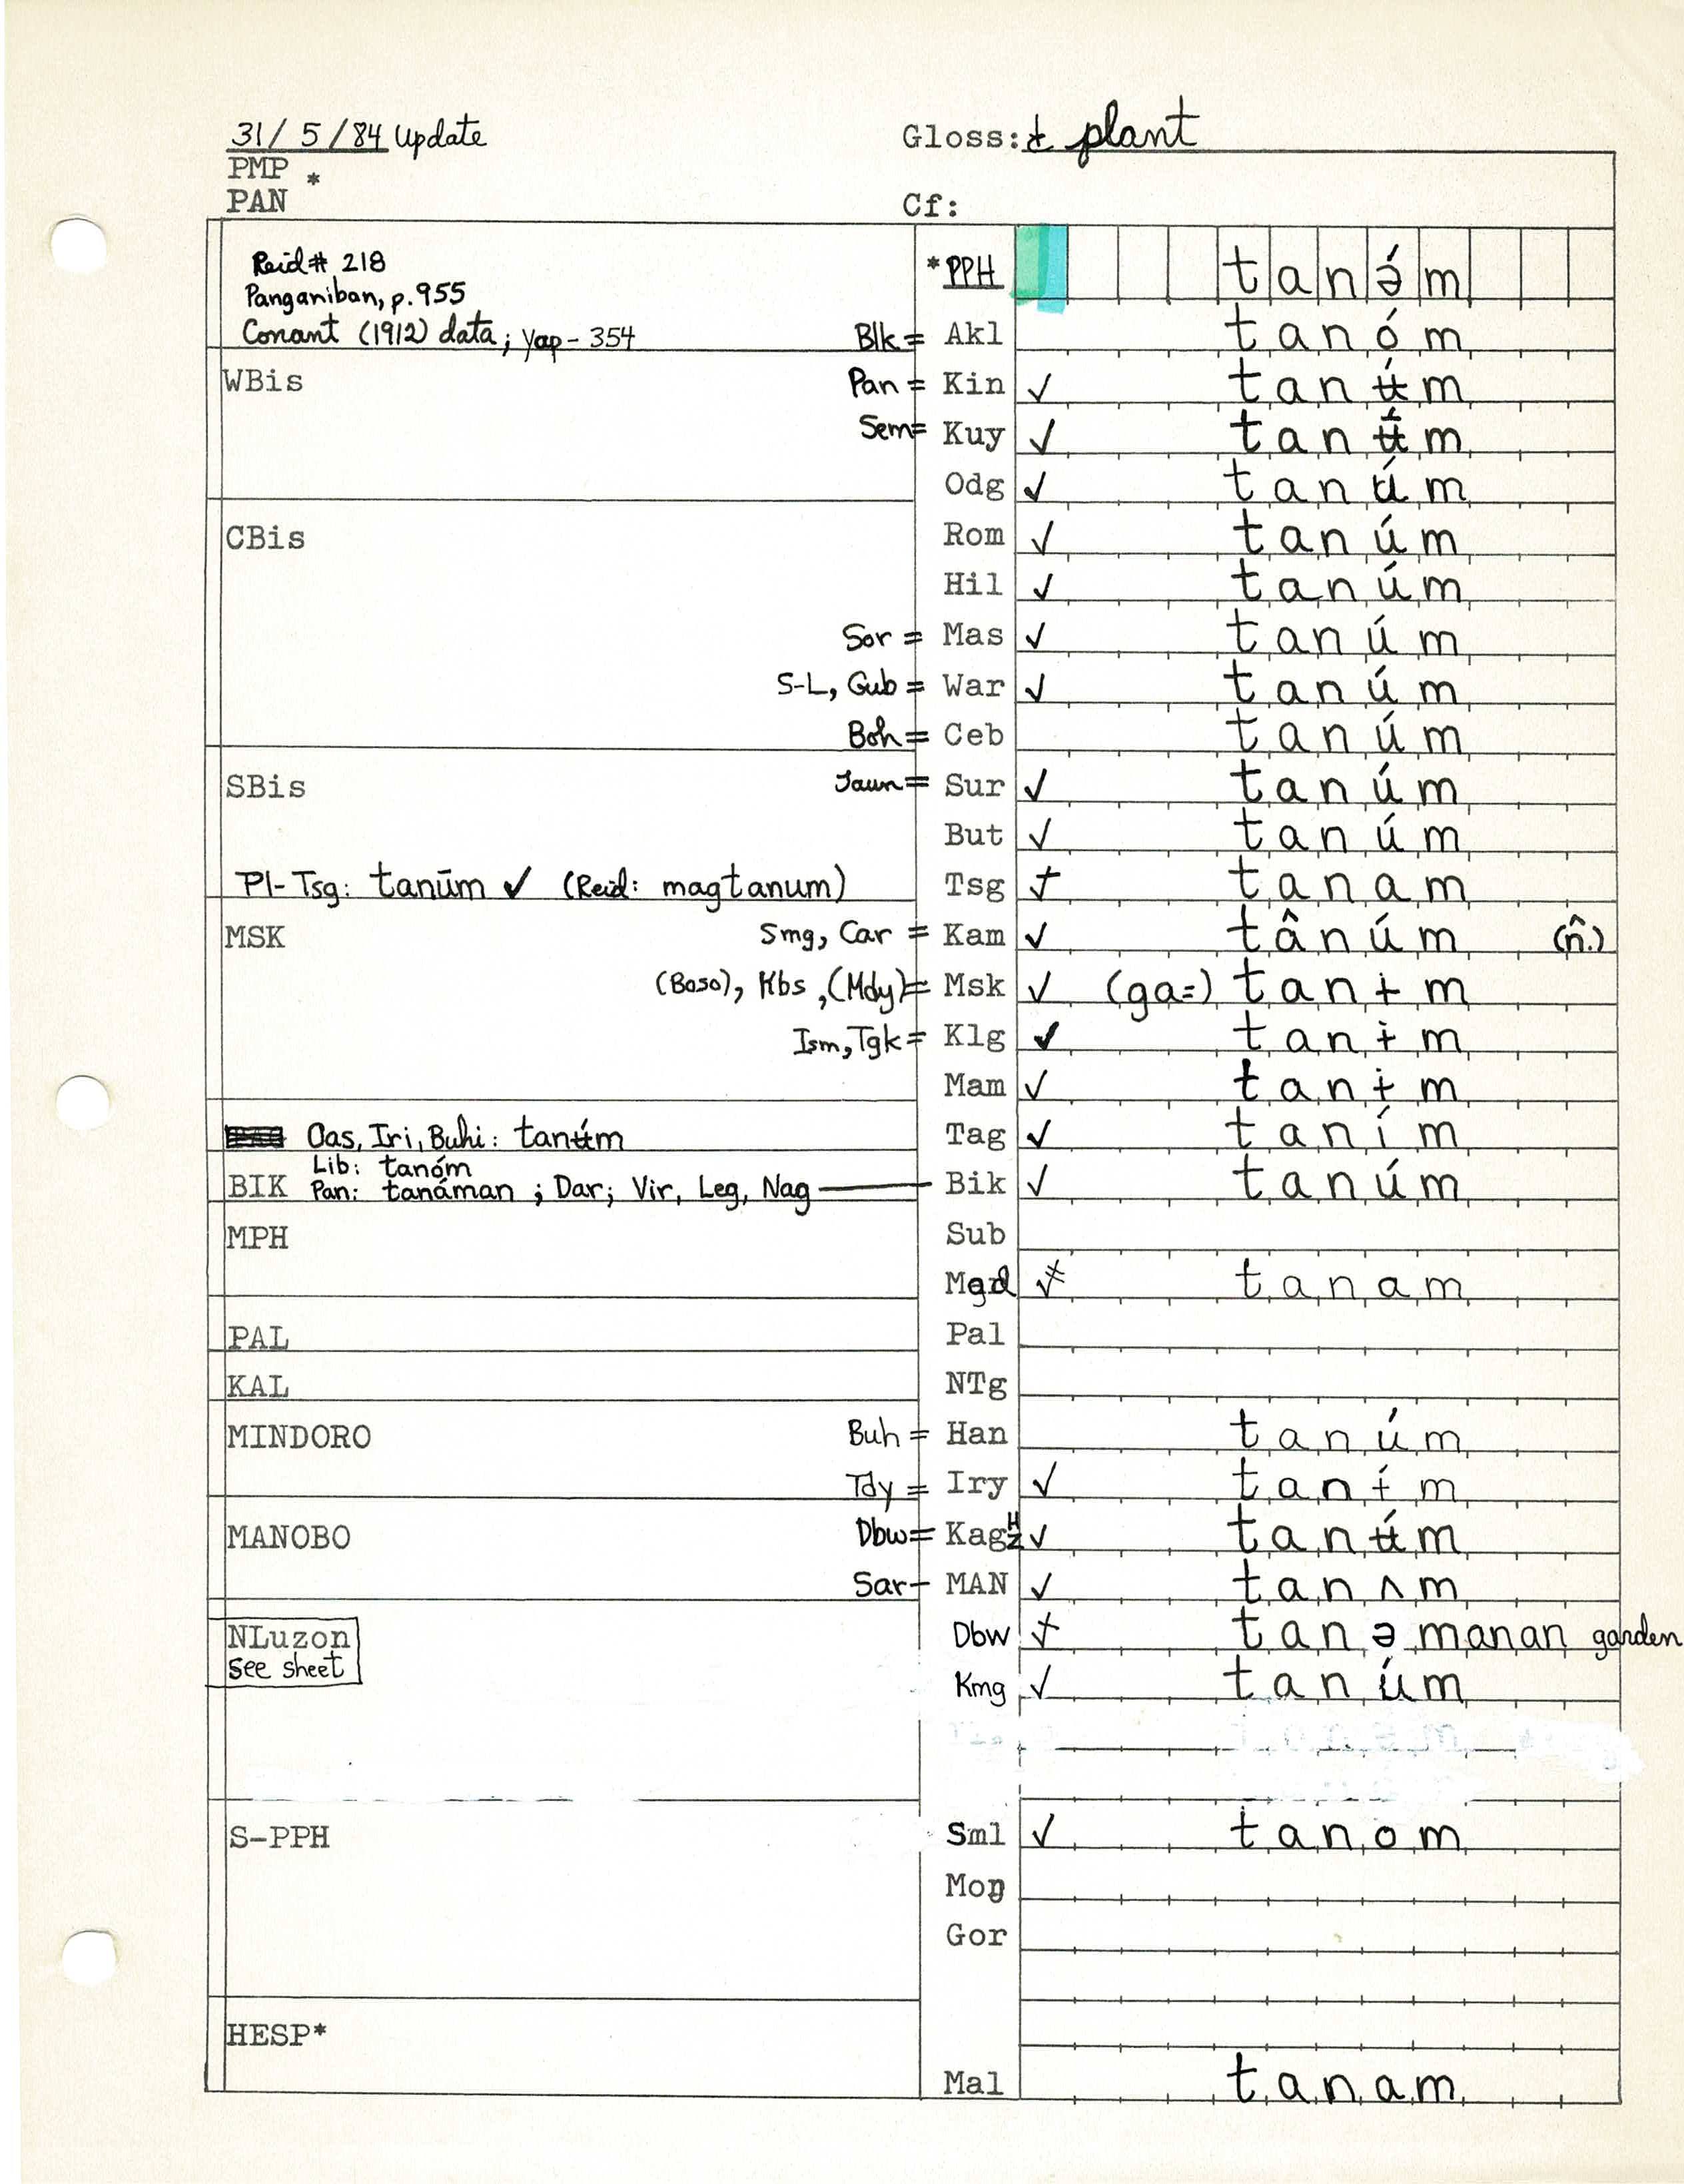 31/ 5 /84 Update Gloss: ± plant
PMP *
PAN Cf:
Reid# 218
Panganiban, p.955
*PPH tanə́m
Conant (1912) data; Yap - 354 Blk = Akl tanóm
WBis Pan = Kin ✓ tanʉ́m
Sem= Kuy ✓ tanʉ́m
Odg ✓ tanúm
CBis Rom ✓ tanúm
Hil ✓ tanúm
Sor = Mas ✓ tanúm
S-L, Gub = War ✓ tanúm
Boh = Ceb tanúm
SBis Jaun = Sur ✓ tanúm
But ✓ tanúm
Pl-Tsg: tanūm ✓ (Reid: magtanum) Tsg tanam
MSK Smg, Car = Kam ✓ tânúm (n̂.)
(Baso), Kbs, (Mdy)= Msk ✓ (ga=) tanɨm
Ism, Tgk = Klg ✓ tanɨm
Mam ✓ tanɨm
Oas, Iri, Buhi: tanʉ́m Tag ✓ taním
Lib: tanóm
BIK Pan: tanáman ; Dar; Vir, Leg, Nag — Bik ✓ tanúm
MPH Sub
Mgd tanam
PAL Pal
KAL NTg
MINDORO Buh = Han tanúm
Tdy = Iry ✓ tanɨ́m
MANOBO Dbw= Kag ✓ tanʉ́m
Sar- MAN ✓ tanʌm
NLuzon Dbw tanəmanan garden
See sheet
Kmg ✓ tanúm
S-PPH Sml ✓ tanom
Mog
Gor
HESP*
Mal tanam